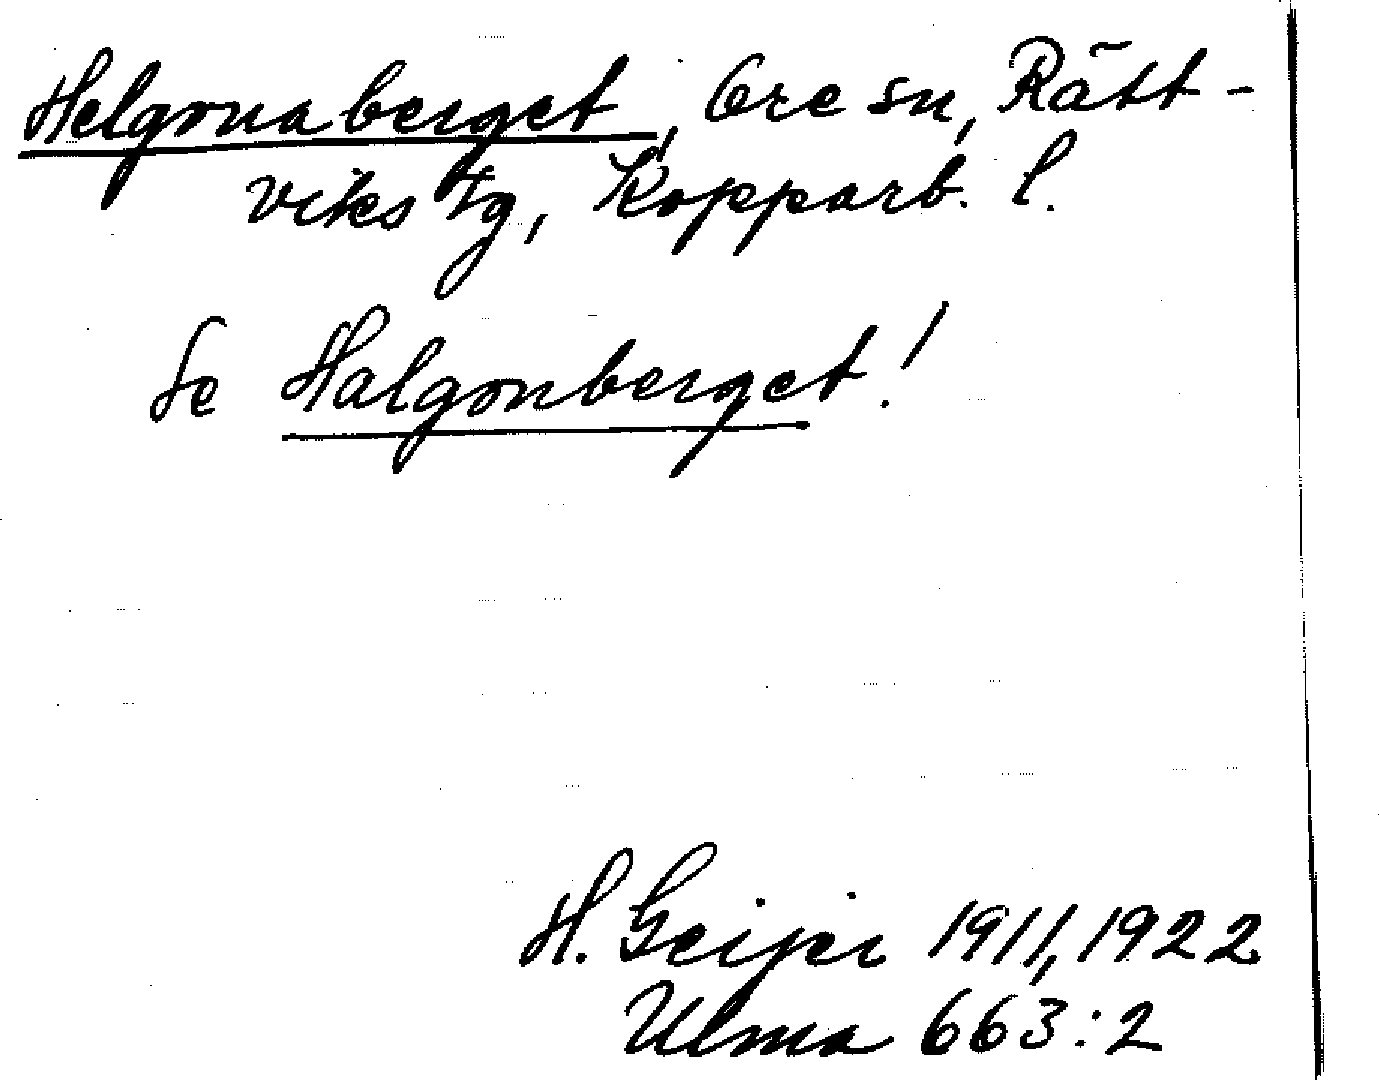 Helgonaberget, Ore sn, Rätt-
viks tg, Kopparb. l.
Se Halgonberget!
H. Geijer 1911, 1922
Ulma 663:2